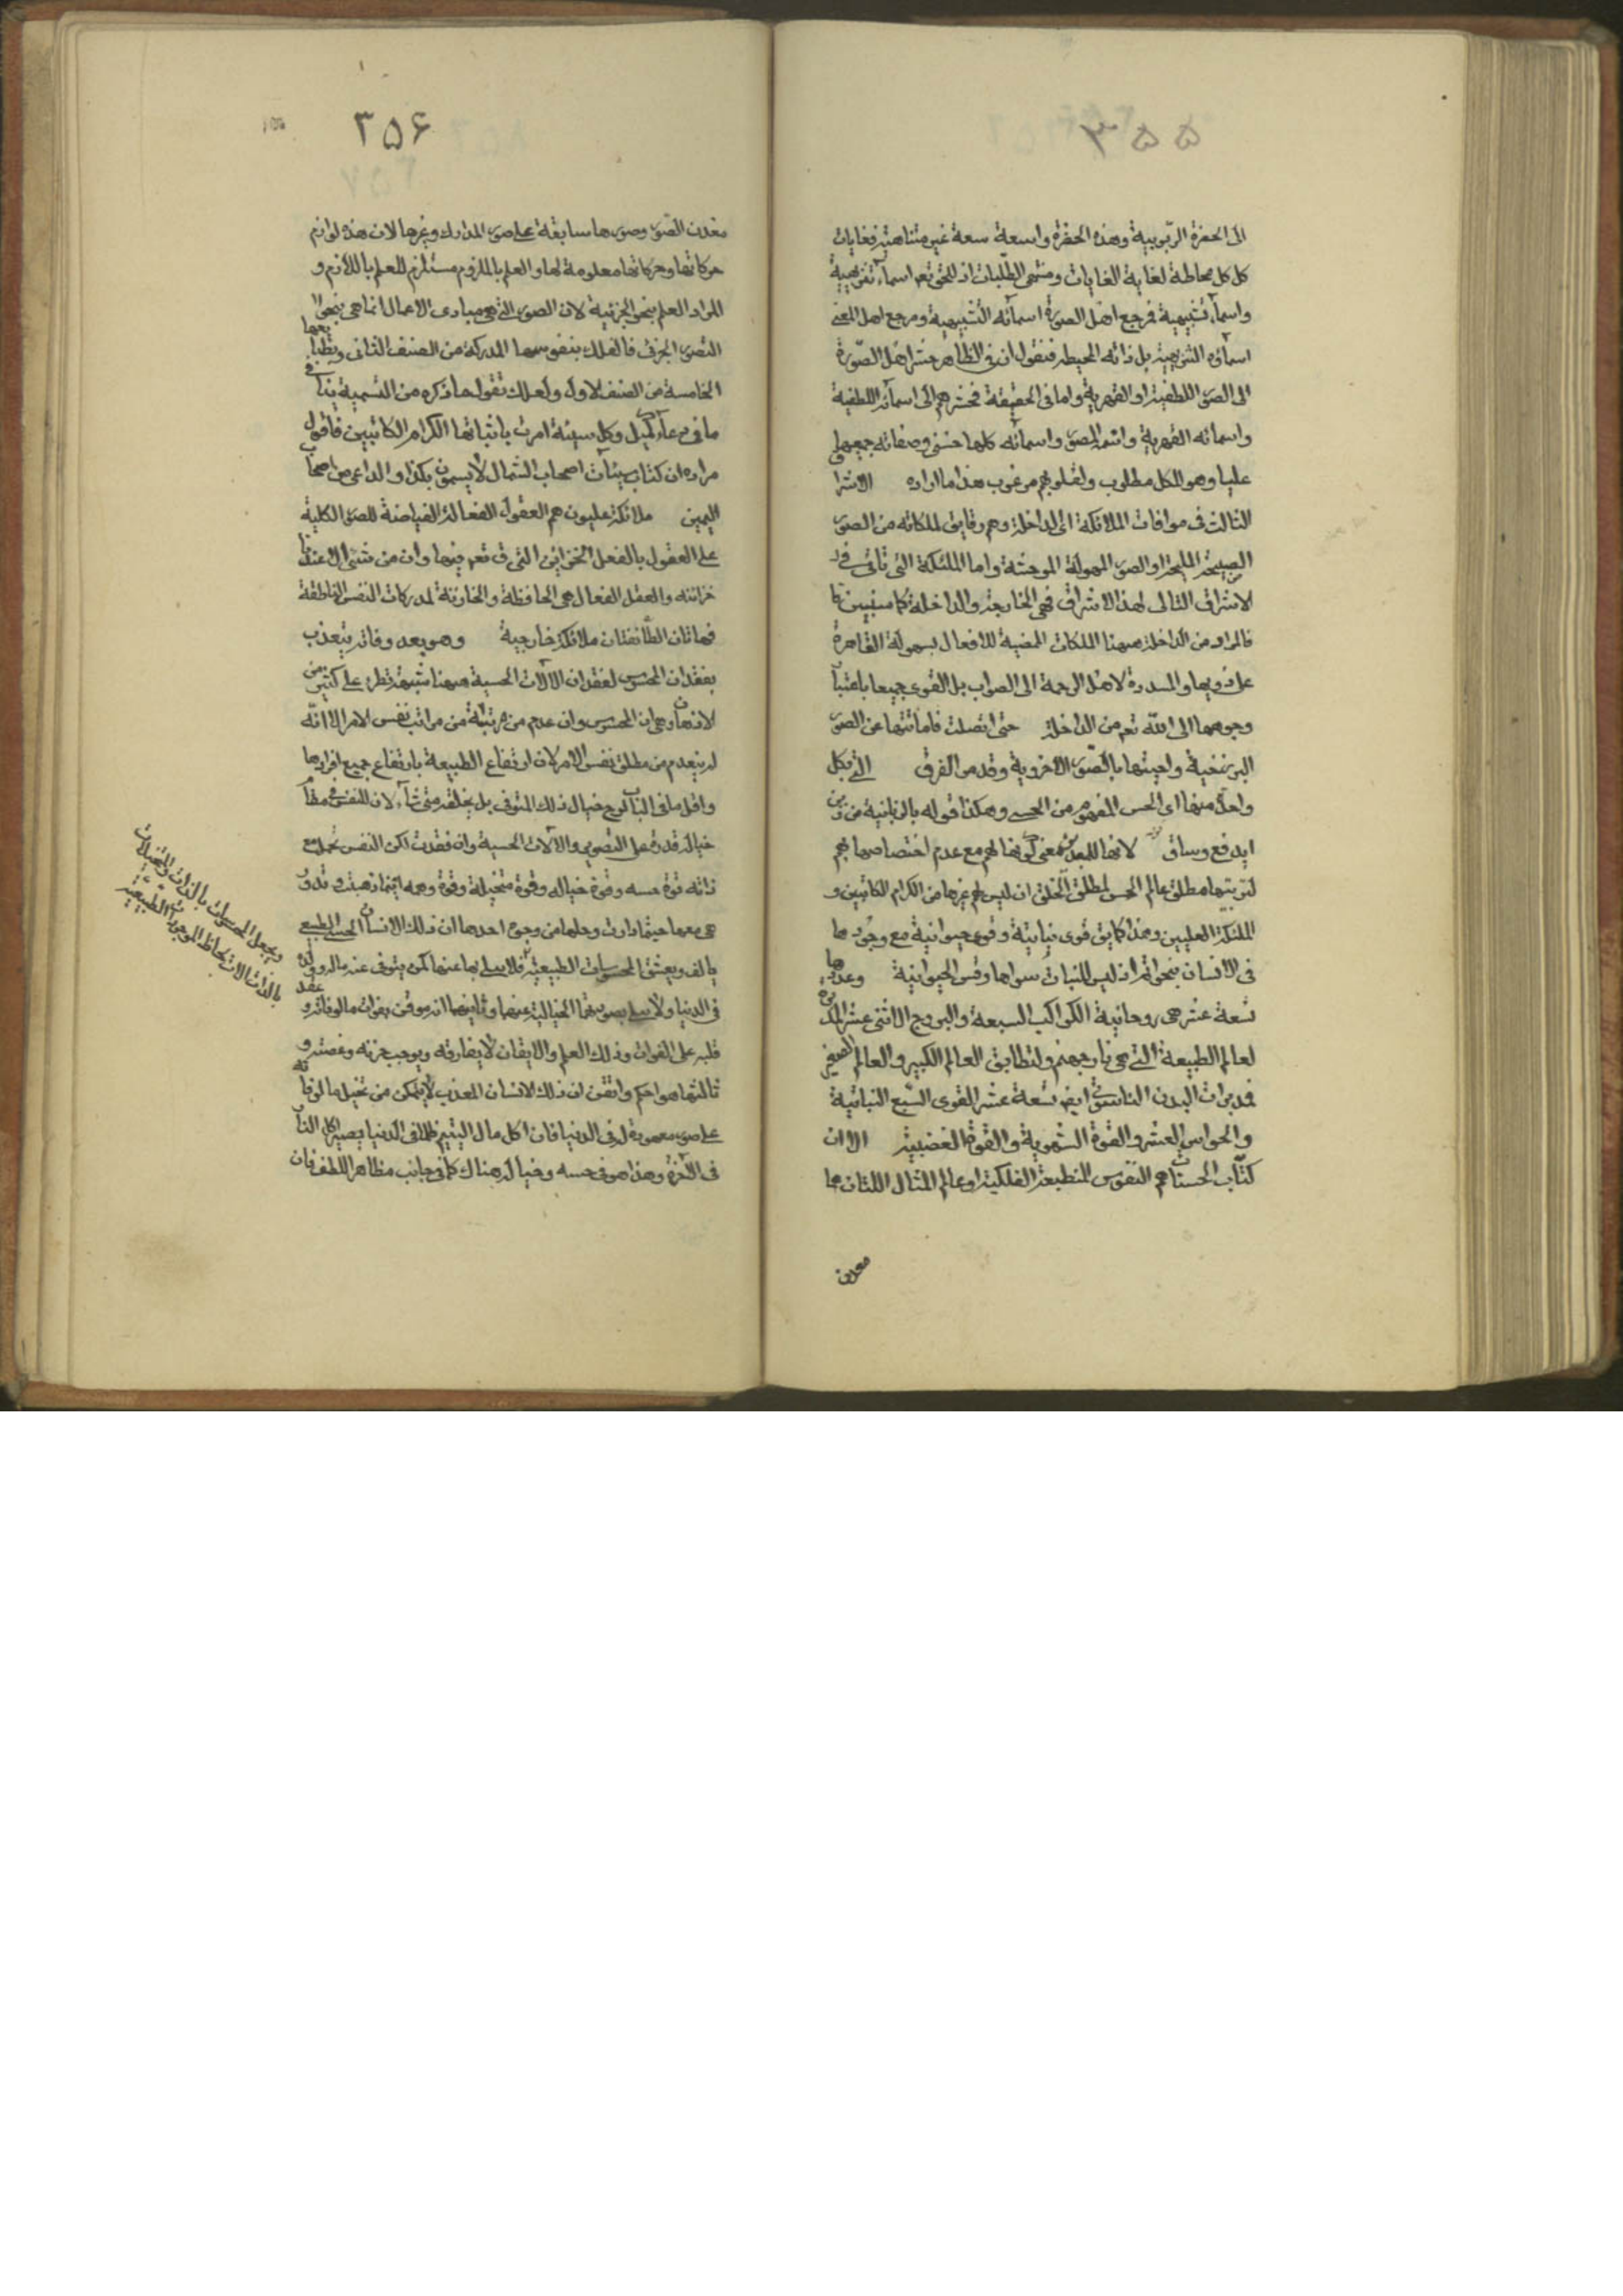 ۳۵۵
الى الحضرة الربوبية وهذه الحضرة واسعة سعة غير متناهية فغايات
كل كل محاطة لغاية الغايات ومنتهى الطلبات اذ للحق تعم اسماء تنزيهية
واسماء تشبيهية فمرجع اهل الصورة اسمائه التشبيهية ومرجع اهل المعنى
اسماؤه التنزيهية بل ذاته المحيطة فنقول ان في الظاهر حشر اهل الصورة
الى الصور اللطفية او القهرية واما في الحقيقة فحشرهم الى اسمائه اللطفية
واسمائه القهرية وانتم الصور واسمائه كلها حسنى وصفاته جميعها
عليا وهو للكل مطلوب ولقلوبهم مرغوب هذا ما اراده الاشرا
الثالث في موافات الملائكة الى الداخلة وهم رقايق لملكاته من الصور
الصبيحة المليحة او الصور المهولة الموحشة واما الملئكة التي تاتي في
الاشراق التالى لهذا الاشراق فهى الخارجة والداخلة كما سنبين
فالمراد من الداخلة ههنا الملكات المضية للافعال بسهولة القاهرة
على ذويها والمسددة لاهل الرحمة الى الصواب بل القوى جميعا باعتبا
وجوهها الى الله تعم من الداخلة حتى اتصلت فاماتتها عن الصور
البرزخية واحيتها بالصور الاخروية وقد مر الفرق التي بكل
واحد منها اى الحس المفهوم من الحسى وهكذا قوله بالزبانية من
ايد فع وساق لانها للبعد بمعنى كونها لهم مع عدم اختصاصها بهم
لتربيتها مطلق عالم الحس لمطلق الخلق ان ليس لهم غيرها من الكرام الكاتبين و
الملئكة العليين وهذا كما يق قوى نباتية وقوى حيوانية مع وجودها
في الانسان بنحو اتم اذ ليس للنبات سواها وقس الحيوانية وعددها
تسعة عشر هى روحانية الكواكب السبعة والبروج الاثنى عشر المدبرة
لعالم الطبيعة التي هى نار جهنم ولتطابق العالم الكبير والعالم الصغير
فمدبرات البدن الناسوتى ايضا تسعة عشر القوى السبع النباتية
والحواس العشر والقوة الشهوية والقوة الغضبية الا ان
كتاب الحسنات هم النفوس المنطبعة الفلكية او عالم المثال اللتان هما
معدن
۳۵۶
معدن الصور وصورها سابقة على صور المدارك وغيرها لان هذه لوازم
حركاتها وحركاتها معلومة لها والعلم بالملزوم مستلزم للعلم باللازم و
المراد العلم بنحو الجزئية لان الصور التي هى مبادى الاعمال انما هى بنحو
التصور الجزئى فالفلك بنفوسها المدركة من الصنف الثانى وبطبايعها
الخامسة من الصنف الاول ولعلك تقول ما ذكره من التسمية ينافى
ما في دعاء كميل وكل سيئة امرت باثباتها الكرام الكاتبين فاقول
مراده ان كتاب سيئات اصحاب الشمال لا يسمون بكذا والداعى من اصحاب
اليمين ملائكة عليون هم العقول الفعالة الفياضة للصور الكلية
على العقول بالفعل الخزائن التي ق تعم فيها وان من شئ الا عندنا
خزائنه والعقل الفعال هى الحافظة والخازنة لمدركات النفس الناطقة
فهاتان الطائفتان ملائكة خارجية وهو بعد وفاته يتعذب
بفقدان المحسوس لفقدان الالات الحسية ههنا شبهة تطرء على كثير من
الاذهان وهى ان المحسوس وان عدم من مرتبة من مراتب نفس الامر الا انه
لم ينعدم من مطلق نفس الامر لان ارتفاع الطبيعة بارتفاع جميع افرادها
واقل ما في الباب لوح خيال ذلك المتوفى بل يخلقه متى شاء لان للنفس في مقام
خياله قدرة على التصوير والالات الحسية وان فقدت لكن النفس تحمل مع
ذاته قوة حسه وقوة خياله وقوة متخيلة وقوة وهمه اينما ذهبت وتدور
هى معها حيثما دارت وحلها من وجوه احدها ان ذلك الانسان الحسى الطبيعى
يالف ويعشق المحسوسات الطبيعية فلا يسلى بها عنها كمن يتوفى عنه ماله وولده
في الدنيا ولا يسلى بصورتهما الخيالية عنهما وثانيهما انه موقن بفوات مالوفاته وعقد
قلبه على الفوات وذلك العلم والايقان لا يفارقه ويوجب حزنه وغصته و
ثالثها هو احكم واتقن ان ذلك الانسان المعذب لا يتمكن من تخيل مالوفاته
على صور معهودة له في الدنيا فان اكل مال اليتيم ظلما في الدنيا يصير اكل النار
في الاخرة وهذا هو في حسه وخياله هناك كما في جانب مظاهر اللطف فان
ويجعل المحسوسات بالذات والمتخيلات
بالذات الات لحاظ الموجودات الطبيعية